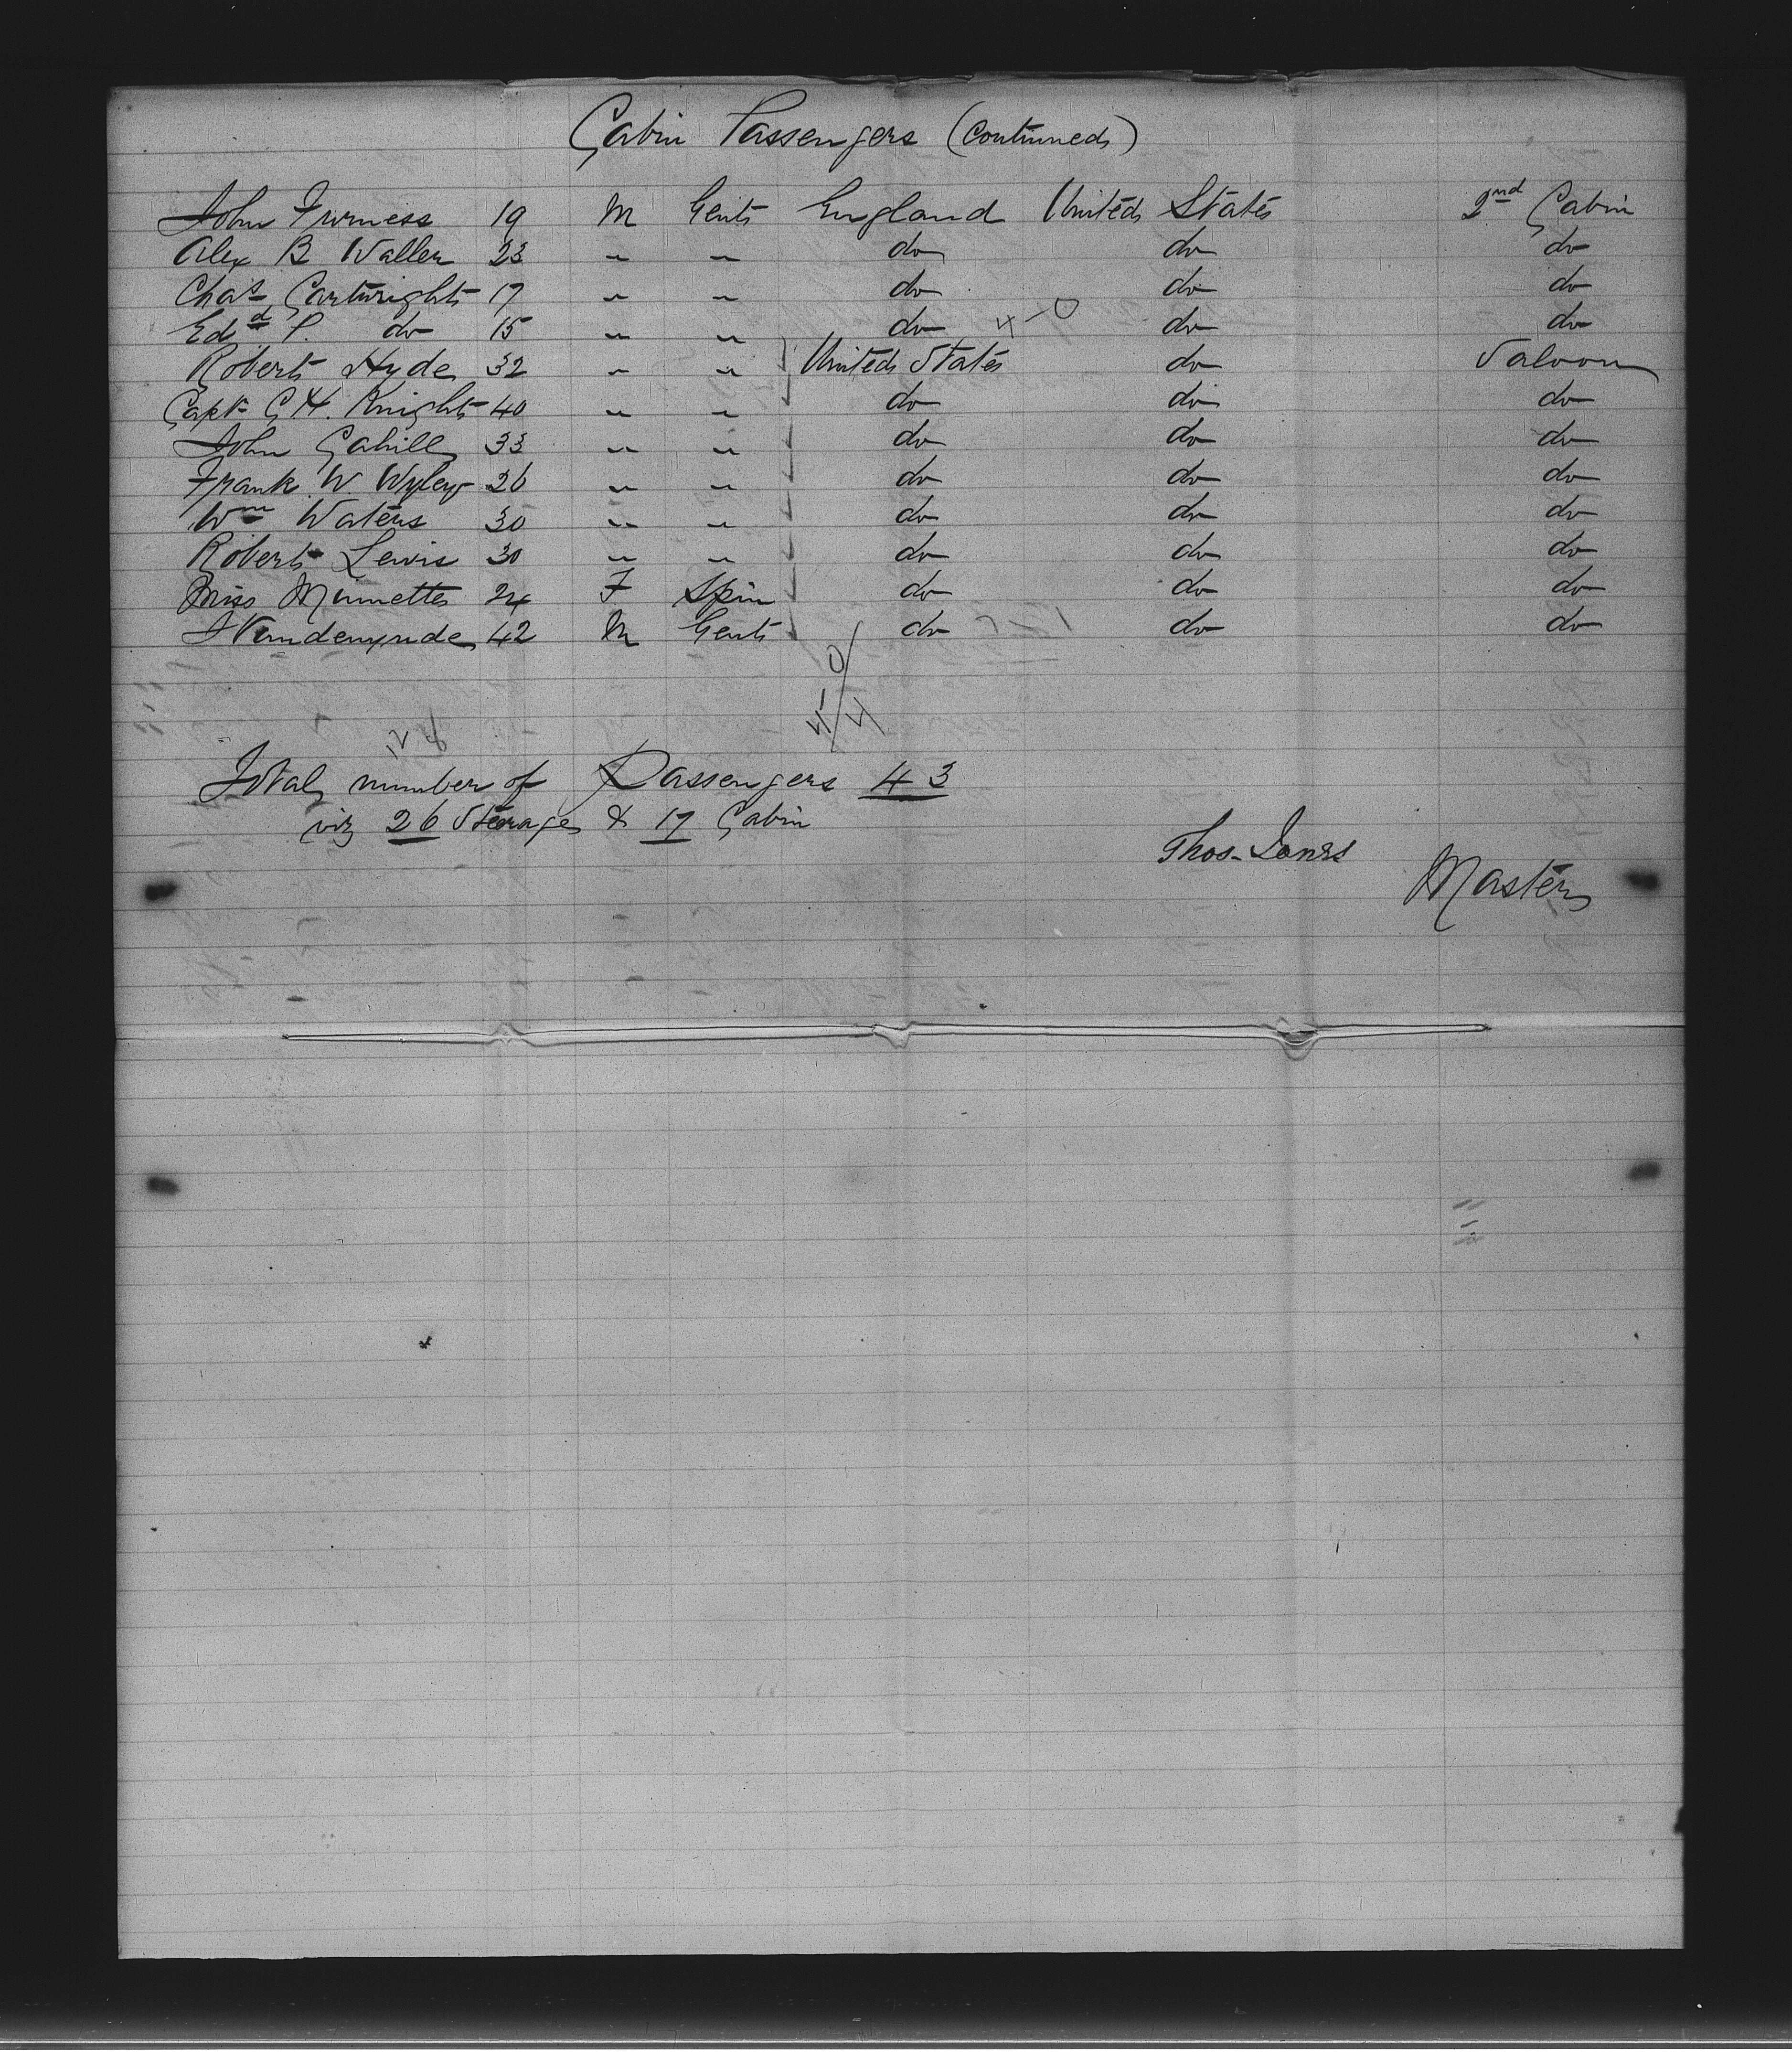 Cabin Passengers (Continued)
John Furness 19 M Gent England United States 2nd Cabin
Alex B Waller 23 " " do do do
Chas Cartwright 17 " " do do do
Edd P. do 15 " " do 4-0 do do
Robert Hyde 32 " " United States do Saloon
Capt G H. Knight 40 " " do do do
John Cahill 33 " " do do do
Frank W. Wyley 26 " " do do do
Wm Waters 30 " " do do do
Robert Lewis 30 " " do do do
Miss Minnette 24 F Spin do do do
42 M Gent do 7-1 do do
Total number of Passengers 43
viz 26 Steerage & 17 Cabin
Thos. Jones
Master